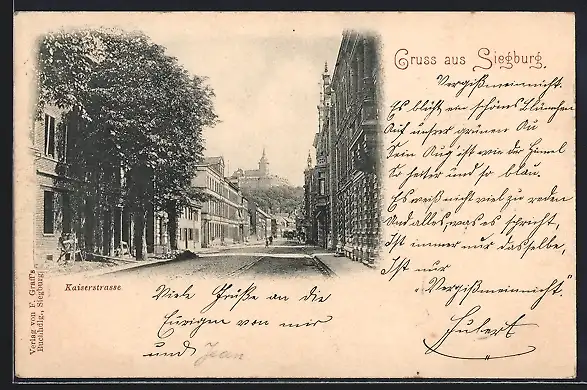 Gruss aus Siegburg.
Vergißmeinnicht.
Es blüht ein schönes Blümchen
Auf unsrer grünen Au
Sein Aug ist wie der Himmel
So heiter und so blau.
Es weiß nicht viel zu reden
Und alles, was es spricht,
Ist immer nur dasselbe,
Ist nur
"Vergißmeinnicht."
Hubert
Kaiserstrasse
Viele Grüße an die
Eurigen von mir
und Jean
Verlag von F. Graff's
Buchhdlg., Siegburg